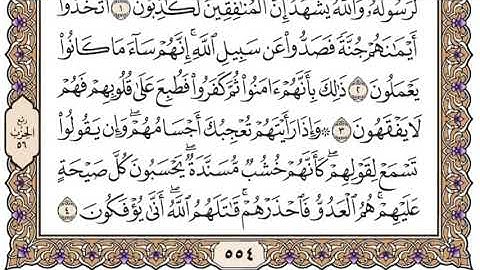 لَرَسُولُهُۥ وَٱللَّهُ يَشۡهَدُ إِنَّ ٱلۡمُنَٰفِقِينَ لَكَٰذِبُونَ ١ ٱتَّخَذُوٓاْ
أَيۡمَٰنَهُمۡ جُنَّةٗ فَصَدُّواْ عَن سَبِيلِ ٱللَّهِۚ إِنَّهُمۡ سَآءَ مَا كَانُواْ
يَعۡمَلُونَ ٢ ذَٰلِكَ بِأَنَّهُمۡ ءَامَنُواْ ثُمَّ كَفَرُواْ فَطُبِعَ عَلَىٰ قُلُوبِهِمۡ فَهُمۡ
لَا يَفۡقَهُونَ ٣ ۞ وَإِذَا رَأَيۡتَهُمۡ تُعۡجِبُكَ أَجۡسَامُهُمۡۖ وَإِن يَقُولُواْ
تَسۡمَعۡ لِقَوۡلِهِمۡۖ كَأَنَّهُمۡ خُشُبٞ مُّسَنَّدَةٞۖ يَحۡسَبُونَ كُلَّ صَيۡحَةٍ
عَلَيۡهِمۡۚ هُمُ ٱلۡعَدُوُّ فَٱحۡذَرۡهُمۡۚ قَٰتَلَهُمُ ٱللَّهُۖ أَنَّىٰ يُؤۡفَكُونَ ٤
ربع
الحزب
٥٦
٥٥٤